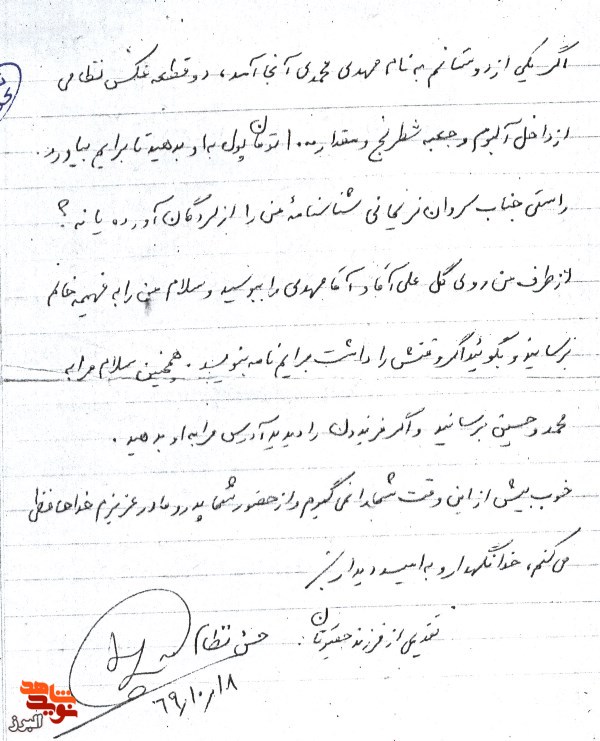 اگر یکی از دوستانم به نام مهدی محمدی آنجا آمد، دو قطعه عکس نظامی
از داخل آلبوم و جعبه شطرنج و مقدار ۱۰۰ تومان پول به او بدهید تا برایم بیاورد.
راستی جناب سروان نریمانی شناسنامهٔ من را از لردگان آورده یا نه؟
از طرف من روی گل علی آقا و آقا مهدی را ببوسید و سلام من را به فهیمه خانم
برسانید و بگوئید اگر وقتش را داشت برایم نامه بنویسید. همچنین سلام مرا به
محمد و حسین برسانید و اگر فریدون را دیدید آدرس مرا به او بدهید.
خوب بیش از این وقت شما را نمی گیرم و از حضور شما پدر و مادر عزیزم خداحافظی
می کنم، خدانگهدار و به امید دیدار
تقدیمی از فرزند حقیرتان. حسن نظام
۶۹/۱۰/۸
نوید شاهد
البرز